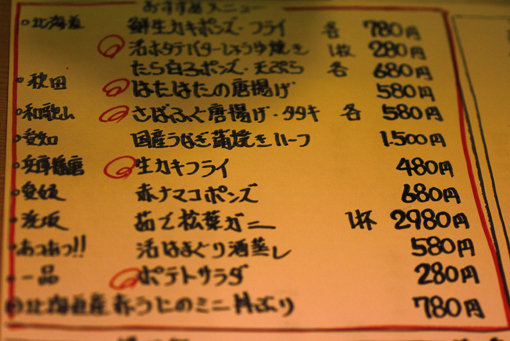 おすすめメニュー
○北海道 鮮生カキポンズ・フライ 各 780円
活ホタテバターしょうゆ焼き 1枚 280円
たら白子ポンズ・天ぷら 各 680円
○秋田 はたはたの唐揚げ 580円
○和歌山 さばふぐ唐揚げ・タタキ 各 580円
○愛知 国産うなぎ蒲焼きハーフ 1.500円
○兵庫播磨 生カキフライ 480円
○愛媛 赤ナマコポンズ 680円
茹で松葉ガニ 1杯 2980円
○あつあつ!! 活はまぐり酒蒸し 580円
○一品 ポテトサラダ 280円
北海道産 赤うにのミニ丼ぶり 780円